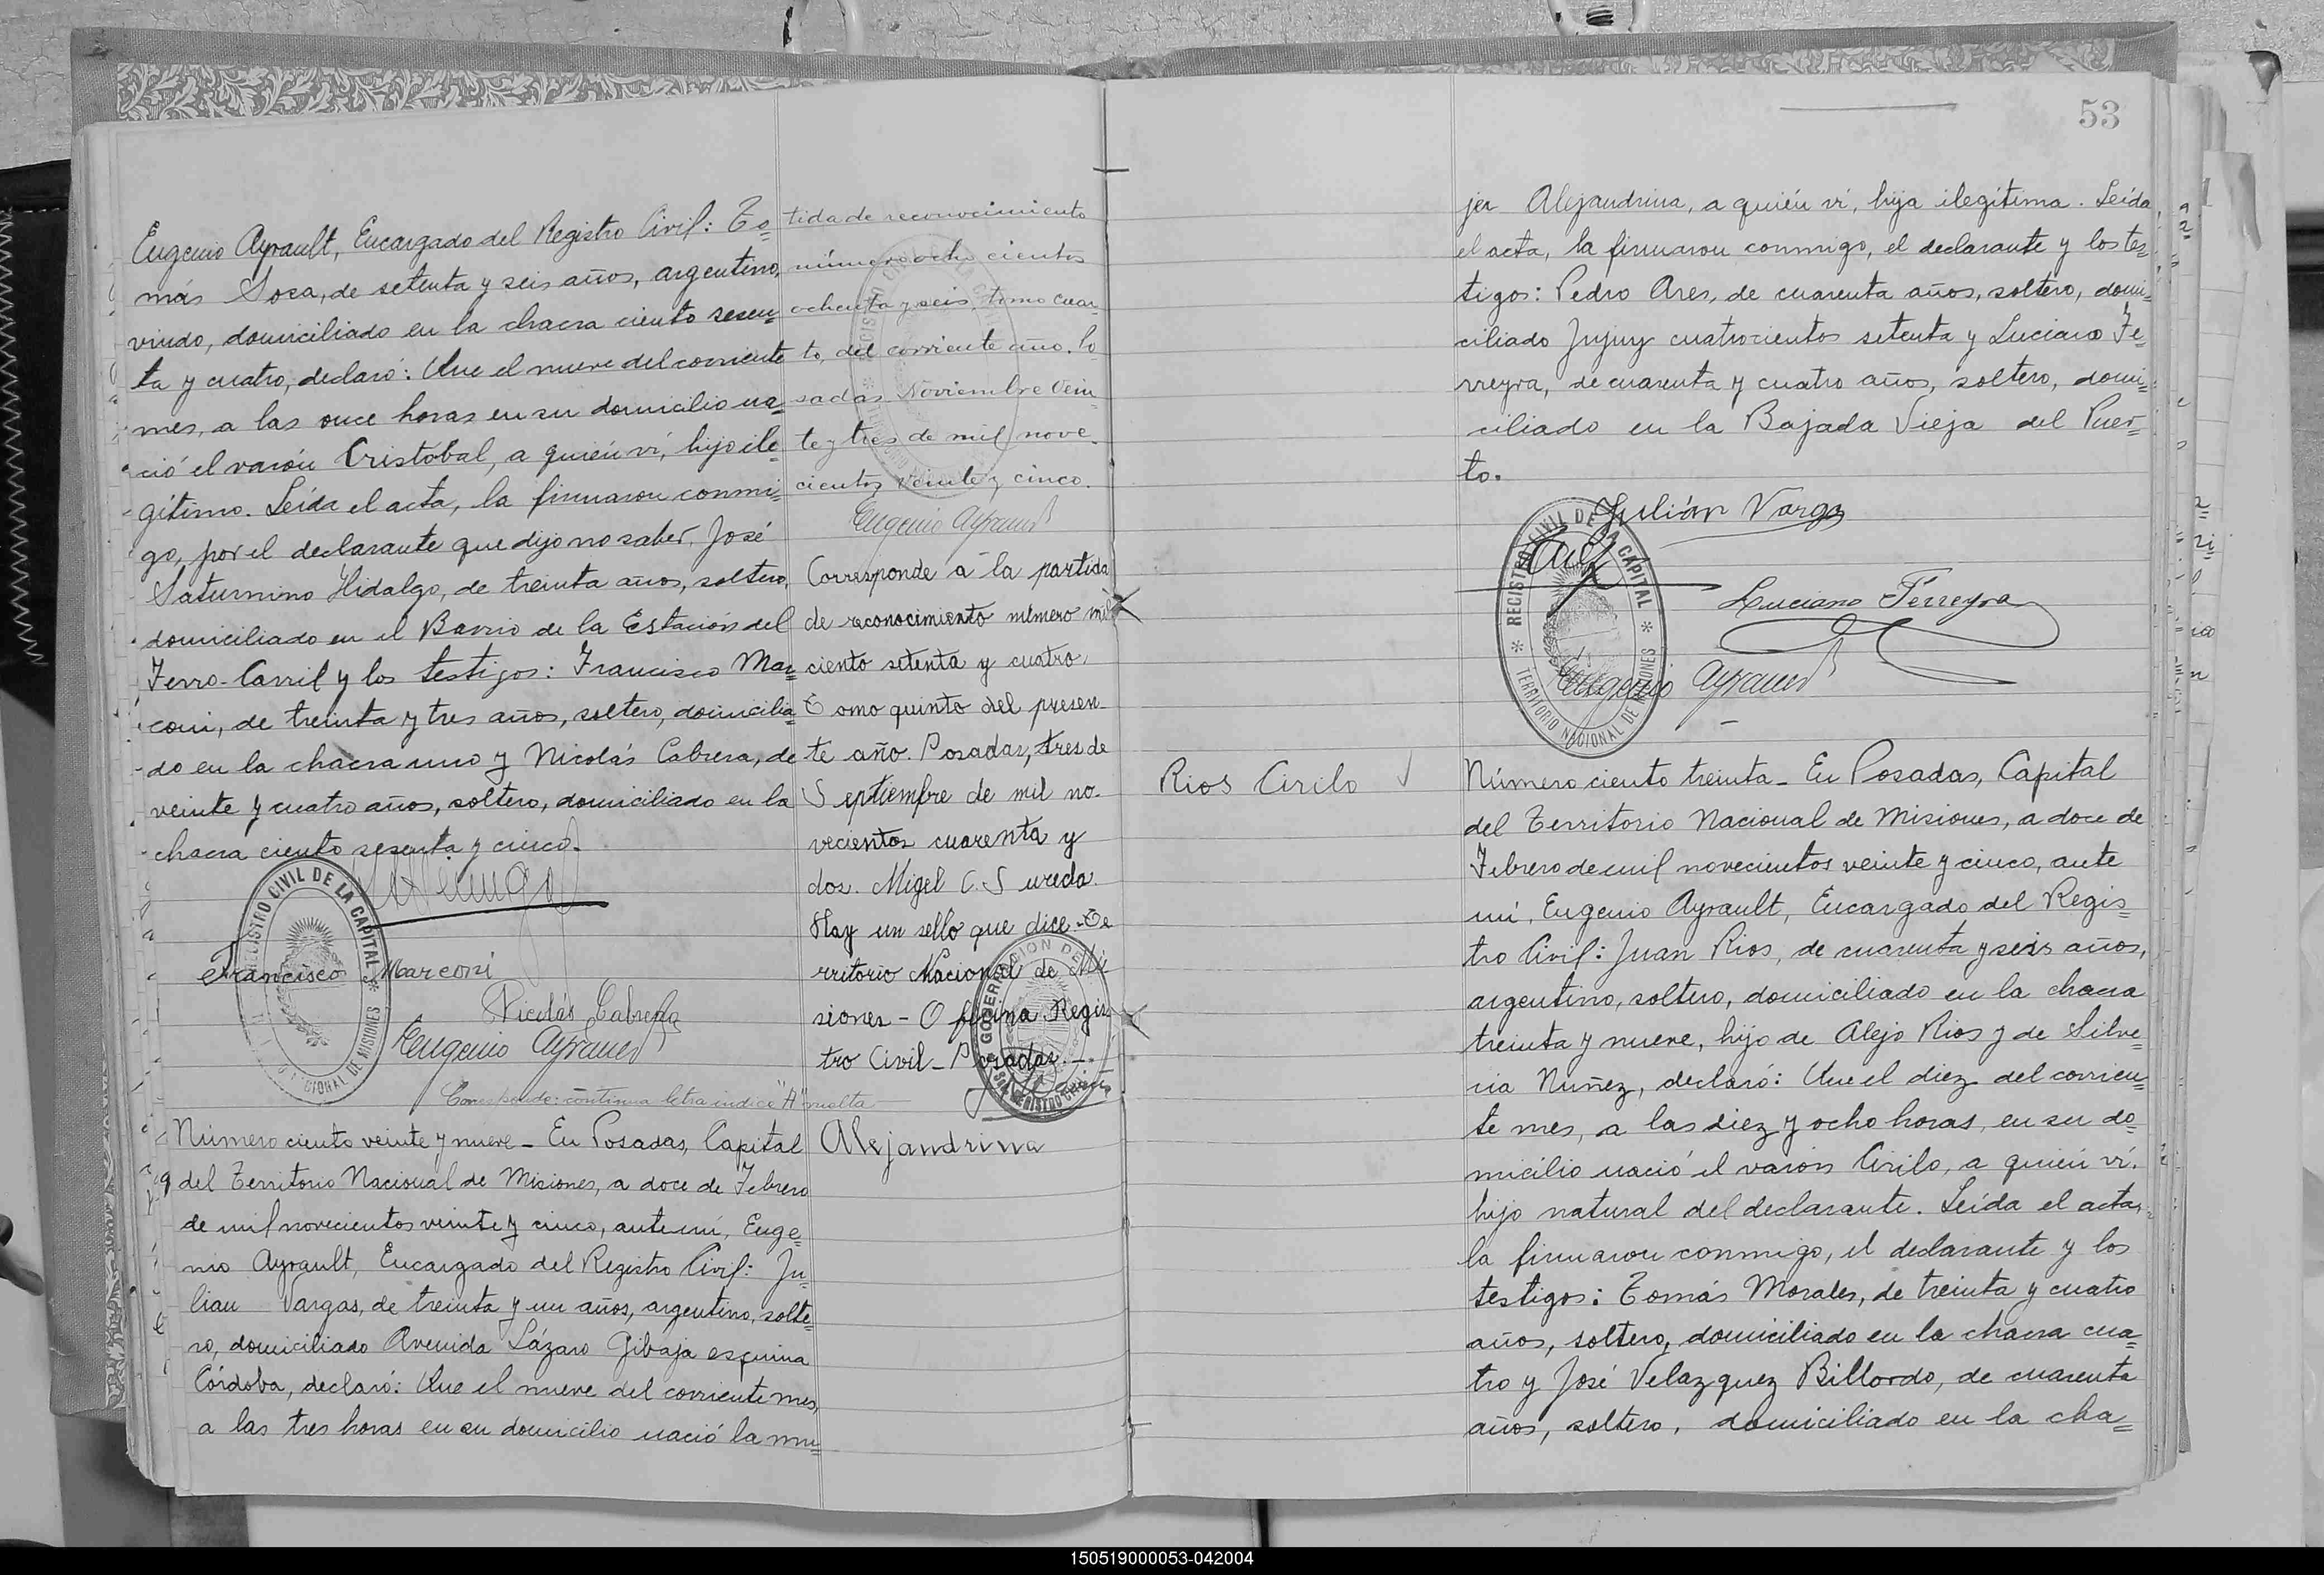 Eugenio Ayrault, Encargado del Registro Civil: To=
más Sosa, de setenta y seis años, argentino,
viudo, domiciliado en la chacra ciento sesen=
ta y cuatro, declaró: Que el nueve del corriente
mes, a las once horas en su domicilio na=
ció el varón Cristobal, a quién ví, hijo ile=
gítimo. Leída el acta, la firmaron conmi=
go, por el declarante que dijo no saber, José
Saturnino Hidalgo, de treinta años, soltero,
domiciliado en el Barrio de la Estación del
Ferro-Carril y los testigos: Francisco Mar=
coni, de treinta y tres años, soltero, domicilia=
do en la chacra uno y Nicolás Cabrera, de
veinte y cuatro años, soltero, domiciliado en la
chacra ciento sesenta y cinco.
REGISTRO CIVIL DE LA CAPITAL
Francisco Marconi
Nicolás Cabrera
Eugenio Ayrault
Corresponde: continua letra indice "A" vuelta
tida de reconocimiento
número ocho cientos
ochenta y seis, tomo cuar-
to, del corriente año. Po
sadas Noviembre vein
te y tres de mil nove-
cientos veinte y cinco.
Eugenio Ayrault
Corresponde á la partida
de reconocimiento número mil
ciento setenta y cuatro,
Tomo quinto del presen-
te año. Posadas, tres de
Septiembre de mil no-
vecientos cuarenta y
dos. Migel C. Sureda.
Hay un sello que dice - Te
rritorio Nacional de Mi
siones - Oficina Regis
tro Civil - Posadas. -
Número ciento veinte y nueve - En Posadas, Capital
del Territorio Nacional de Misiones, a doce de Febrero
de mil novecientos veinte y cinco, ante mí, Euge=
nio Ayrault, Encargado del Registro Civil: Ju=
lian Vargas, de treinta y un años, argentino, solte=
ro, domiciliado Avenida Lázaro Gibaja esquina
Córdoba, declaró: Que el nueve del corriente mes,
a las tres horas en su domicilio nació la mu=
Alejandrina
53
jer Alejandrina, a quién ví, hija ilegítima. Leída
el acta, la firmaron conmigo, el declarante y los tes=
tigos: Pedro Ares, de cuarenta años, soltero, domi=
ciliado Jujuy cuatrocientos setenta y Luciano Fe=
rreyra, de cuarenta y cuatro años, soltero, domi=
ciliado en la Bajada Vieja del Puer=
to.
Julián Vargas
REGISTRO CIVIL DE LA CAPITAL * TERRITORIO NACIONAL DE MISIONES *
Luciano Ferreyra
Eugenio Ayrault
Rios Cirilo
Número ciento treinta - En Posadas, Capital
del Territorio Nacional de Misiones, a doce de
Febrero de mil novecientos veinte y cinco, ante
mí, Eugenio Ayrault, Encargado del Regis=
tro Civil: Juan Rios, de cuarenta y seis años,
argentino, soltero, domiciliado en la chacra
treinta y nueve, hijo de Alejo Rios y de Silve=
ria Nuñez, declaró: Que el diez del corrien=
te mes, a las diez y ocho horas, en su do=
micilio nació el varón Cirilo, a quién ví,
hijo natural del declarante. Leída el acta,
la firmaron conmigo, el declarante y los
testigos: Tomás Morales, de treinta y cuatro
años, soltero, domiciliado en la chacra cua=
tro y José Velazquez Billordo, de cuarenta
años, soltero, domiciliado en la cha=
150519000053-042004